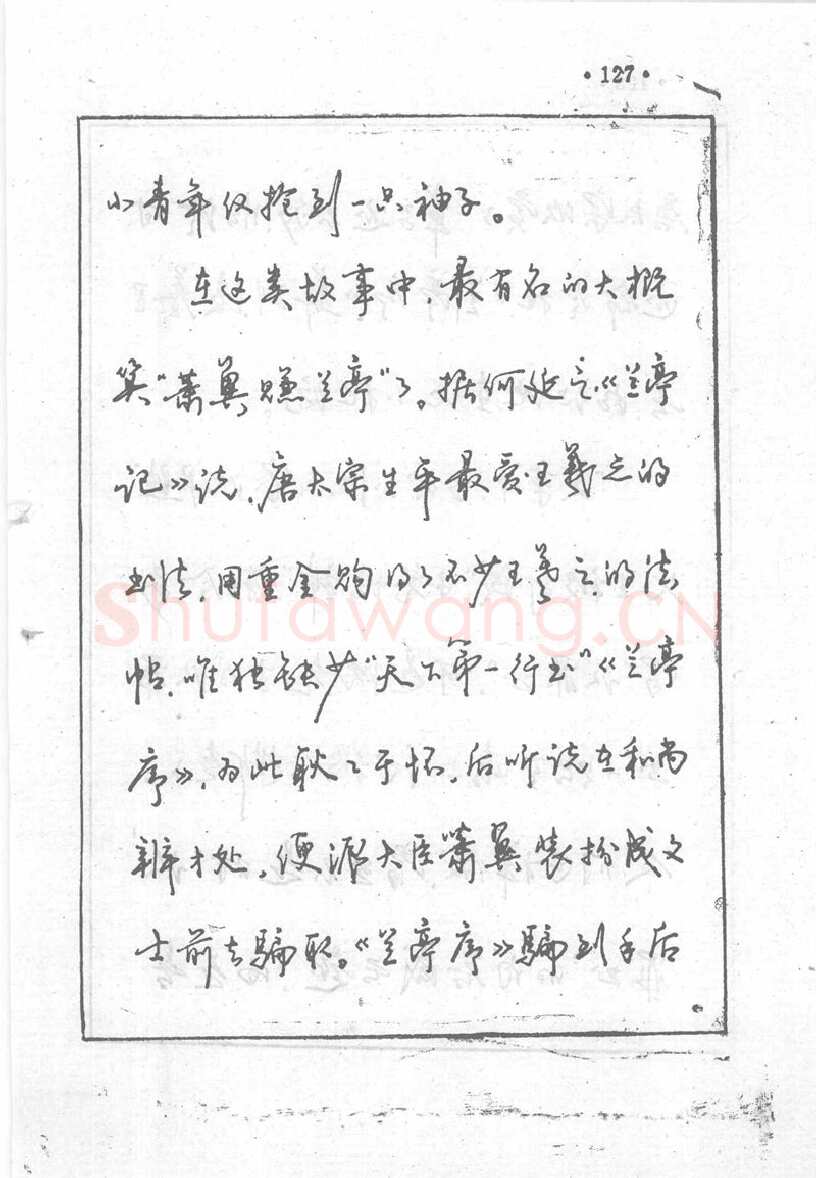 ·127·
小青年仅抢到一只袖子。
在这类故事中，最有名的大概
算“萧翼赚兰亭”了。据何延之《兰亭
记》说，唐太宗生平最爱王羲之的
书法，用重金购得了不少王羲之的法
帖，唯独缺少“天下第一行书”《兰亭
序》，为此耿耿于怀，后听说在和尚
辨才处，便派大臣萧翼装扮成文
士前去骗取。《兰亭序》骗到手后
Shufawang.CN